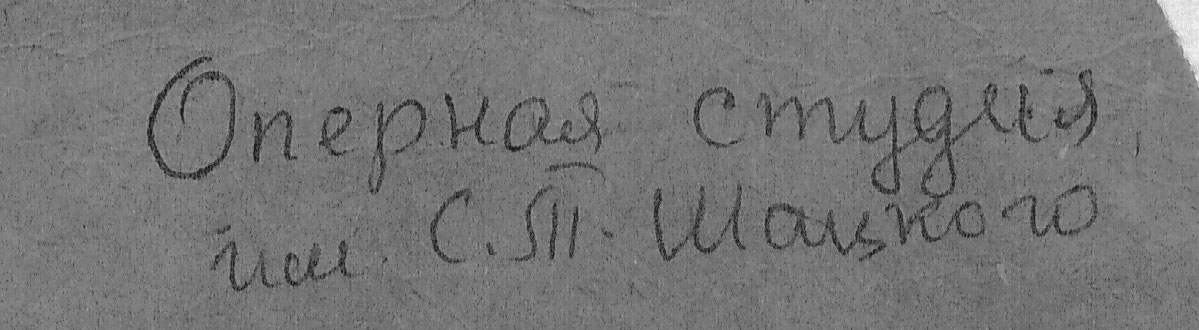 Оперная студия
им. С.Т. Шацкого